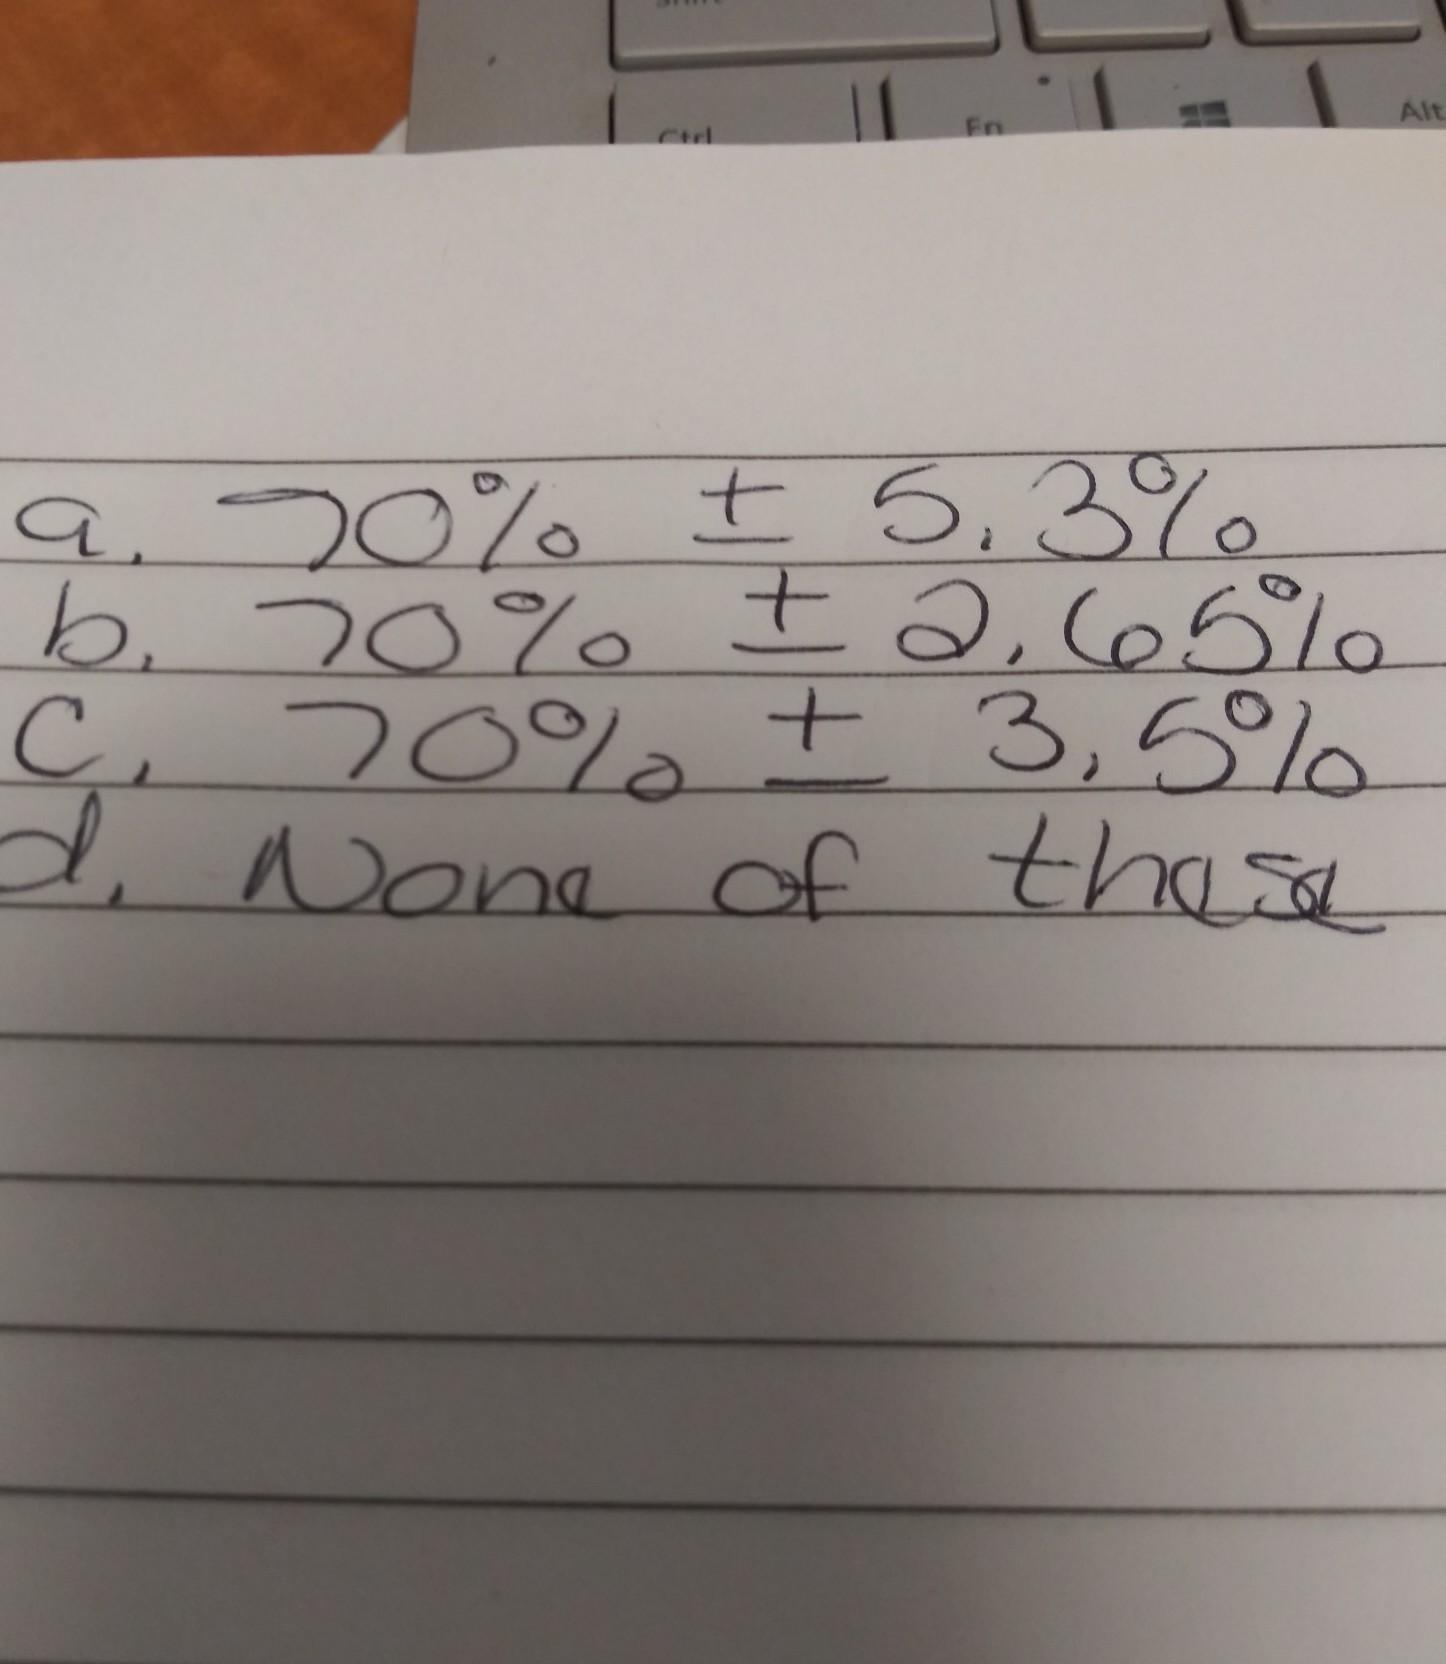 Ctrl
Fn
Alt
a. 70% ± 5.3%
b. 70% ± 2.65%
c. 70% ± 3.5%
d. None of these